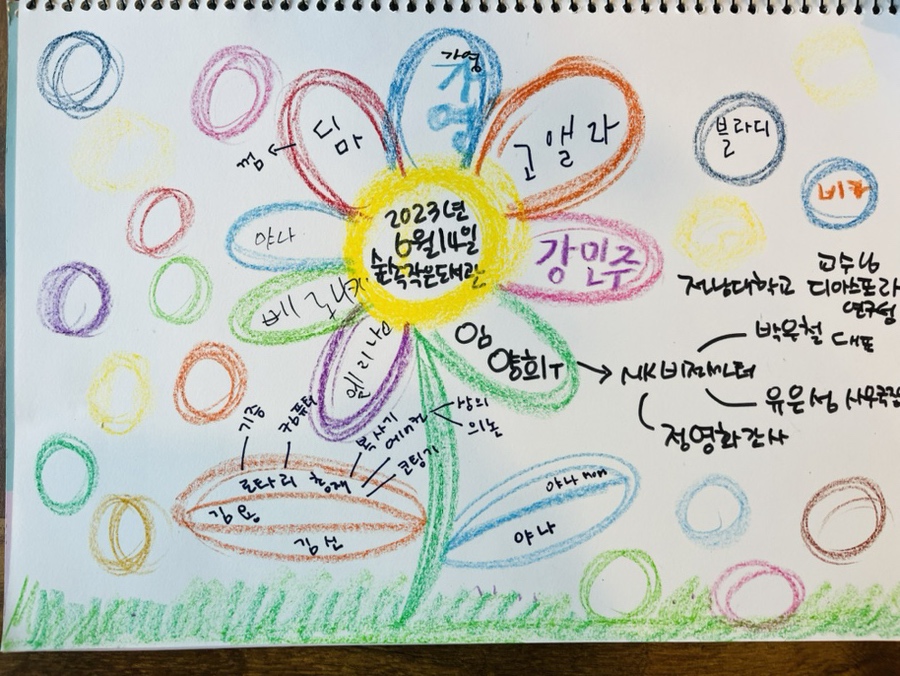 가영
가영
디마
쩜
고앨라
야나
2023년
6월14일
숲속작은도서관
강민주
베로니카
엘리나
임
양희T
NK비전센터
박은철 대표
유은성 사무국장
정영화간사
블라디
비카
전남대학교
교수님
디아스포라
연구성
기증
컴퓨터
복사기
에어컨
상의
의논
코팅기
로타리 형제
김용
김선
야나 mom
야나